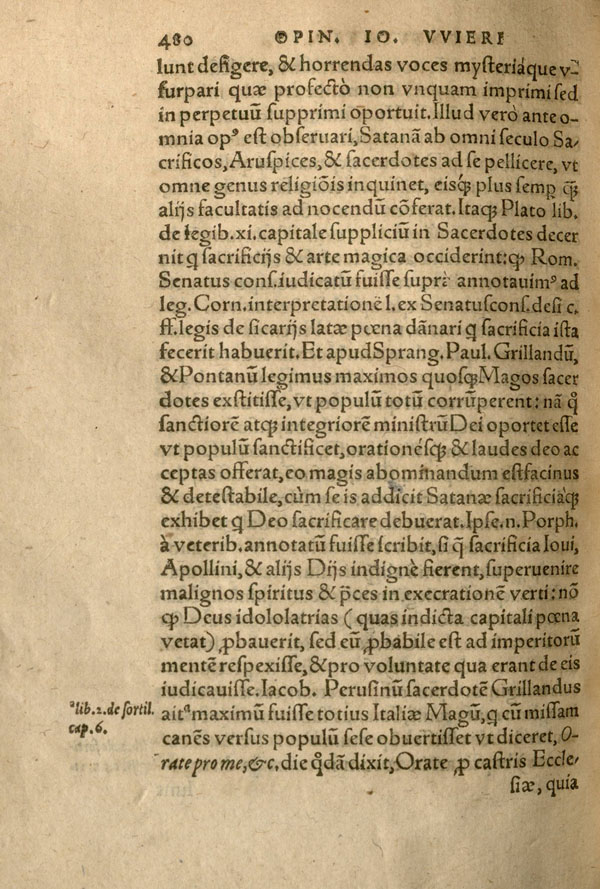 480 OPIN. IO. VVIERI
lunt defigere, & horrendas voces mysteriáque v-
surpari quæ profectò non vnquam imprimi sed
in perpetuũ supprimi oportuit. Illud verò ante o-
mnia opꝰ est obseruari, Satanã ab omni seculo Sa-
crificos, Aruspices, & sacerdotes ad se pellicere, vt
omne genus religiõis inquinet, eisq́ꝫ plus semꝑ q̃ꝫ
alijs facultatis ad nocendũ cõferat. Itaqꝫ Plato lib.
de legib. xi. capitale suppliciũ in Sacerdotes decer
nit q sacrificijs & arte magica occiderint: qꝫ Rom.
Senatus cons. iudicatũ fuisse suprà annotauimꝰ ad
leg. Corn. interpretationẽ l. ex Senatuscons. de si c.
ff. legis de sicarijs latæ pœna dãnari q sacrificia ista
fecerit habuerit. Et apud Sprang. Paul. Grillandũ,
& Pontanũ legimus maximos quosqꝫ Magos sacer
dotes exstitisse, vt populũ totũ corrũperent: nã q̊
sanctiorẽ atqꝫ integriorẽ ministrũ Dei oportet esse
vt populũ sanctificet, orationésqꝫ & laudes deo ac
ceptas offerat, eo magis abominandum est facinus
& detestabile, cùm se is addicit Satanæ sacrificiáqꝫ
exhibet q Deo sacrificare debuerat. Ipse. n. Porph.
à veterib. annotatũ fuisse scribit, si q̃ sacrificia Ioui,
Apollini, & alijs Dijs indignè fierent, superuenire
malignos spiritus & p̃ces in execrationẽ verti: nõ
qꝫ Deus idololatrias (quas indicta capitali pœna
vetat) ꝓbauerit, sed eũ ꝓbabile est ad imperitorũ
mentẽ respexisse, & pro voluntate qua erant de eis
iudicauisse. Iacob. Perusinũ sacerdotẽ Grillandus
ait ᵃ maximũ fuisse totius Italiæ Magũ, q cũ missam
canẽs versus populũ sese obuertisset vt diceret, O-
rate pro me, &c. die q̊dã dixit, Orate ꝓ castris Eccle-
siæ, quia
ᵃ lib. 2. de sortil.
cap. 6.